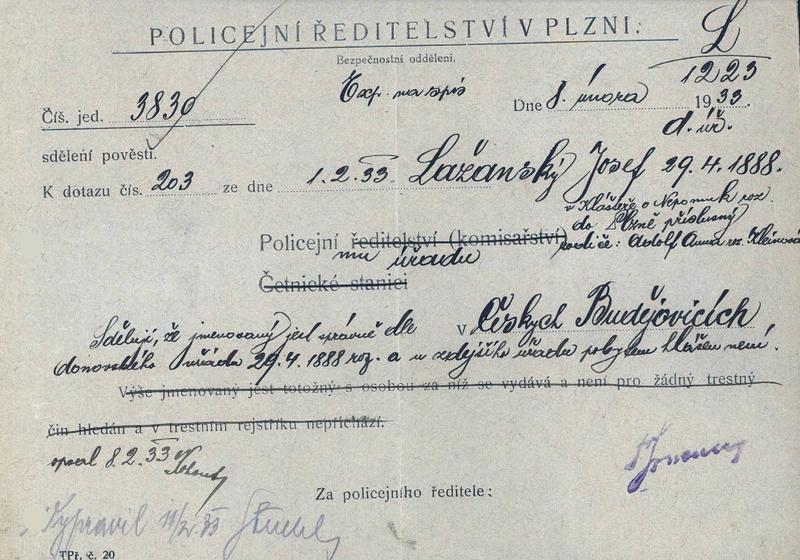 POLICEJNÍ ŘEDITELSTVÍ V PLZNI.
L
Bezpečnostní oddělení.
1223
Exp. na spis
Dne 8. února 1933.
Číš. jed. 3830
d. úř.
sdělení pověsti.
K dotazu čís. 203 ze dne 1.2.33 Lažanský Josef 29.4.1888.
v Klášteře o Nepomuk roz.
do Plzně příslusný
Policejní ředitelství (komisařství) rodiče: Adolf Anna roz. Kleinová
mu úřadu
Četnické stanici
v Českých Budějovicích
Sděluji, že jmenovaný jest správně dle
domovského úřadu 29.4.1888 roz. a u zdejšího úřadu pobytem hlášen není.
Výše jmenovaný jest totožný s osobou za níž se vydává a není pro žádný trestný
čin hledán a v trestním rejstříku nepřichází.
opsal 8.2.33
Za policejního ředitele:
Vypravil 11/2 33
TPř. č. 20